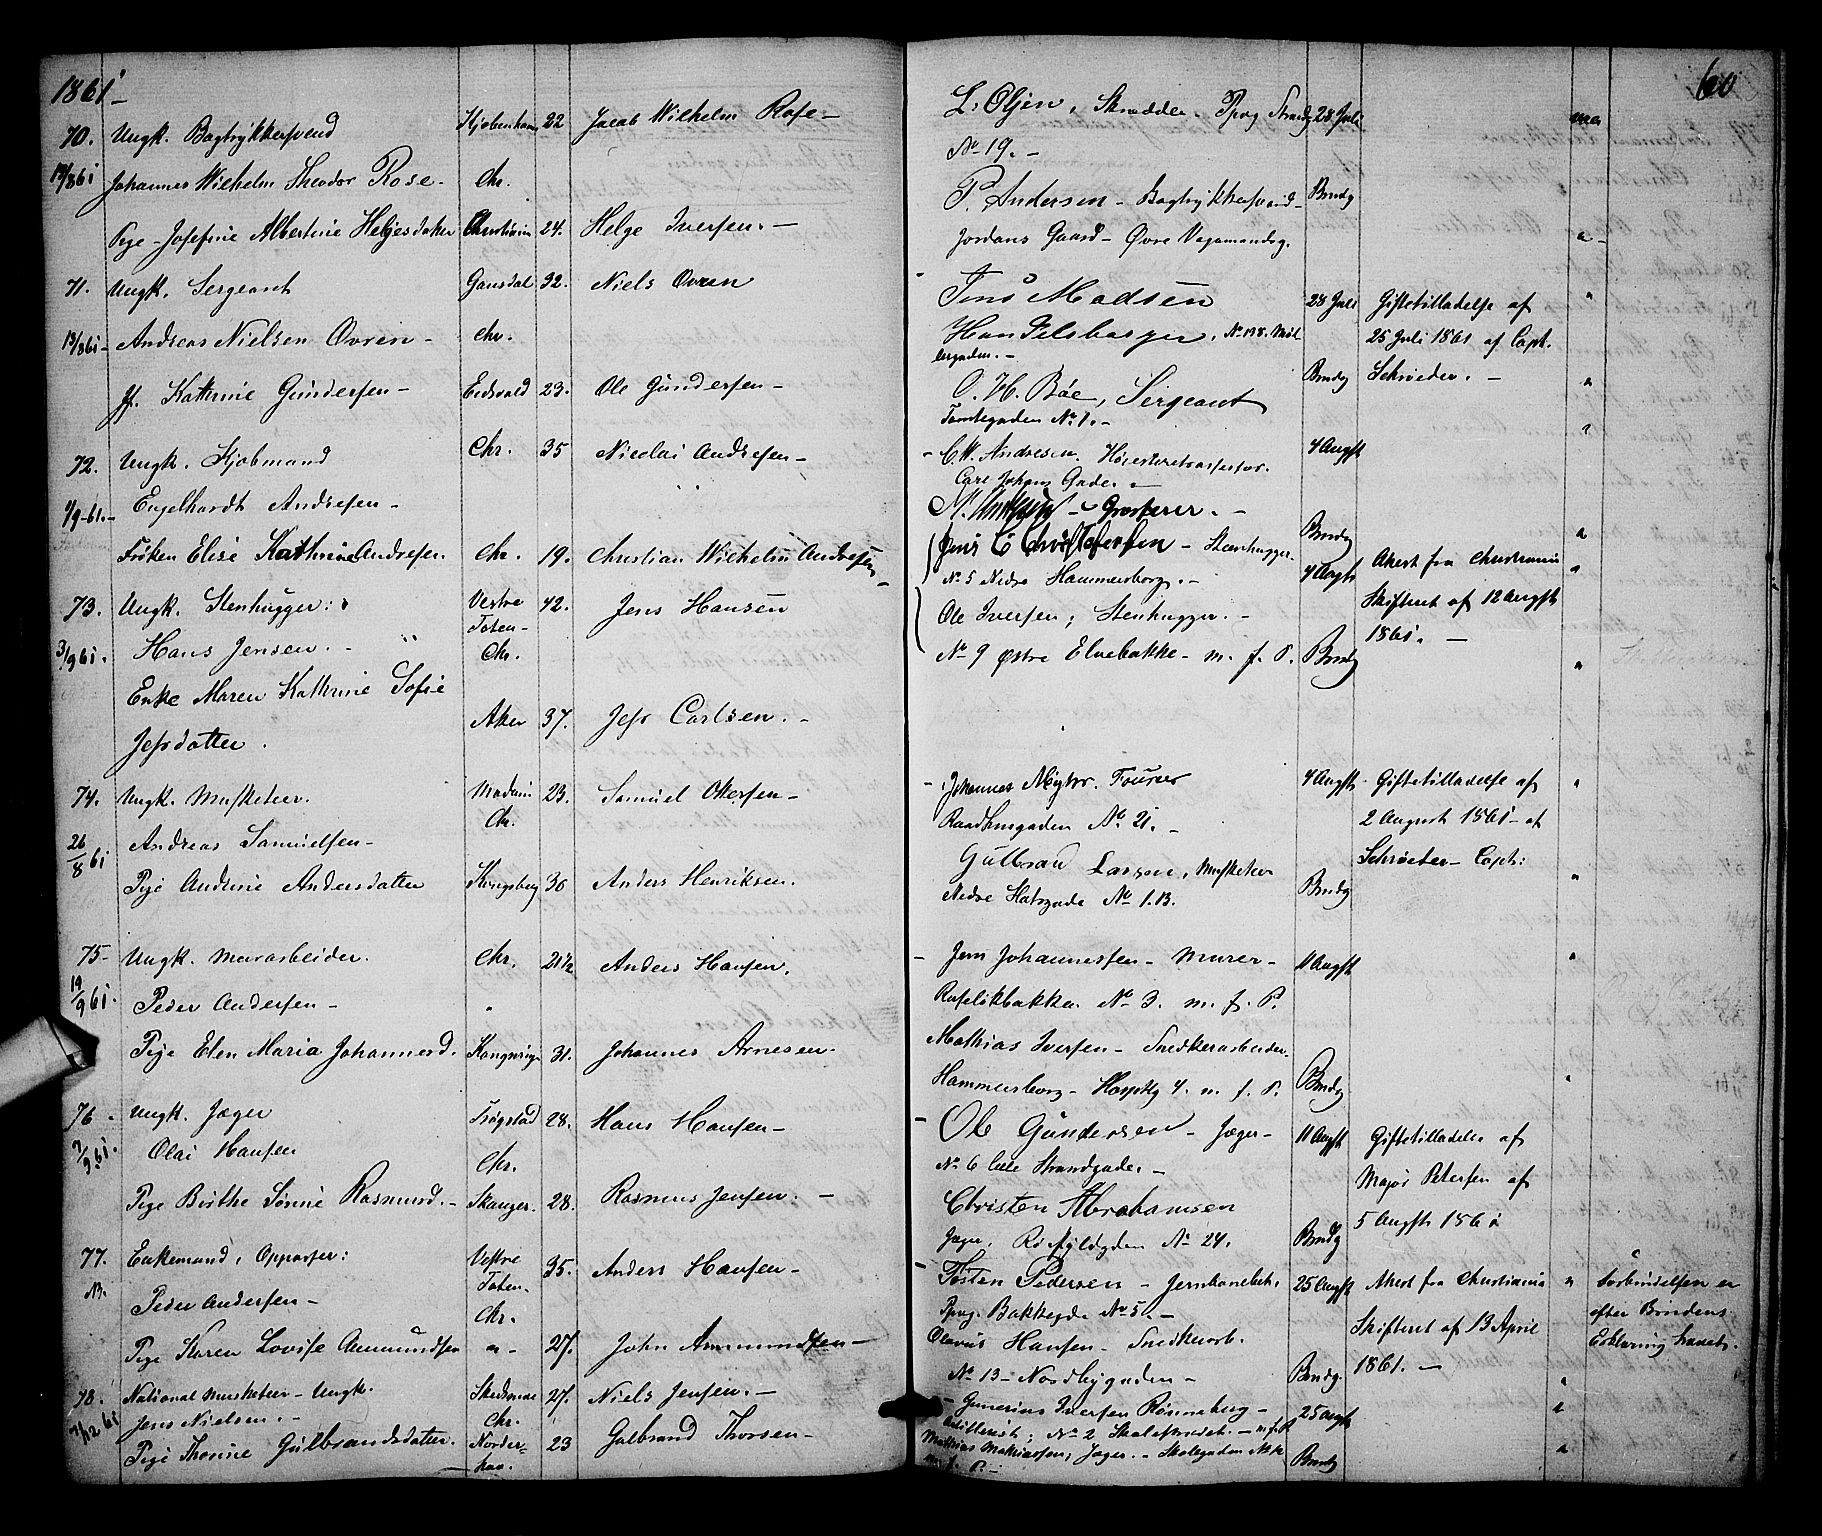 1861 -
70. Ungk. Bogtrykkersvend Kjøbenhavn 22 Jacob Wilhelm Rose -
13/8 61 Johannes Wilhelm Theodor Rose - Chr.
Pige - Josefine Albertine Helgesdatter Christiania 24. Helge Iversen. -
71. Ungk. Sergeant Gausdal 32. Niels Ovren
13/8 61 - Andreas Nielsen Ovren - Chr.
Kathrine Gundersen - Eidsvold 23. Ole Gundersen -
72. Ungk. Kjøbmand Chr. 35 Nicolai Andresen -
Engelhardt Andresen -
/9 - 61. - Frøken Elise Kathrine Andresen. Chr. 19. Christian Wilhelm Andresen -
73. Ungk. Stenhugger: Vestre Toten - 42. Jens Hansen
3/9 61. Hans Jensen. - Chr.
Enke Maren Kathrine Sofie
Jefsdatter. Aker 37. Jefs Carlsen. -
74. Ungk. Musketeer. 23. Samuel Ottersen -
26/8 61 Andreas Samuelsen - Chr.
Pige Andrine Andersdatter Kongsberg 30 Anders Henriksen.
75 - Ungk. Murarbeider. Chr. 21 1/2 Anders Hansen.
19/9 61. Peder Andersen - "
Pige Elen Maria Johannesd. 31. Johannes Arnesen.
76. Ungk. Jæger Trøgstad 28. Hans Hansen -
7/9 61. Olai Hansen Chr.
Pige Birthe Sørine Rasmusd. - Skanger. 28. Rasmus Jensen. -
77. Enkemand, Oppasser: Vestre Toten. 35. Anders Hansen -
Peder Andersen - Chr.
Pige Karen Lovise Ammundsen " - 27. John Ammundsen -
78. National Musketeer - Ungk. Skedsmoe 27. Niels Jensen. -
/12 61 Jens Nielsen. - Chr.
Pige Thorine Gulbrandsdatter. 23 Gulbrand Thorsen -
60
L. Olsen, Skrædder. Pprvg Strandg 28 Juli
No 19. -
P. Andersen - Bogtrykkersvend - Brudg
Jordans Gaard - Øvre Vognmandsg.
Jens Madsen 28 Juli Giftetilladelse af
No 138. 25 Juli 1861 af Capt.
O. H. Bøe, Sergeant Brudg Schrøder. -
Tomtegaden No 1. -
- C. W. Andresen. Høiesteretsassessor. 4 Augst
Carl Johans Gade. -
N. Andresen - Grosserer. - Brudg
Jens C Christofersen - Stenhugger. 4 Augst Attest fra Christiania
No 5 Nedre Hammersborg. -
Ole Iversen; Stenhugger. - Skifteret af 12 Augst
No 9 Østre Elvebakke - m. f. P. Brudg 1861. -
- Johannes Fourer 4 Augst. Giftetilladelse af
Raadhusgaden No 21. - 2 August 1861 - af
Gulbrand Larsen, Musketeer Schrøder - Capt:
Nedre Slotsgade No 1.B. Brudg
- Jern Johannessen - Murer - 11 Augst
Rufeløkbakken No 3. m. f. P.
Mathias Iversen - Snedkerarbeider.
Hammersborg - 4. m. f. P. Brudg
- Ole Gundersen - Jæger - 11 Augst Giftetilladelse af
No 6 Lille Strandgade. - Major Petersen af
Christen Abrahamsen 5 Augst 1861
Jæger, No 24. Brudg
- Tosten Pedersen - Jernbanebetj. 25 Augst Attest fra Christiania " Forbindelsen er
Pprvg. Bakkegde No 5. - Skifteret af 13 April efter Brudens
Olavus Hansen - Snedkerarb. 1861. - Erklæring hævet.
No 13 - Nordbygaden - Brudg.
- Gunerius Iversen Rønneberg - 25 Augst
Artillerist; No 2 - m. f. P
Mathias Mathiassen; Jæger. - Brudg